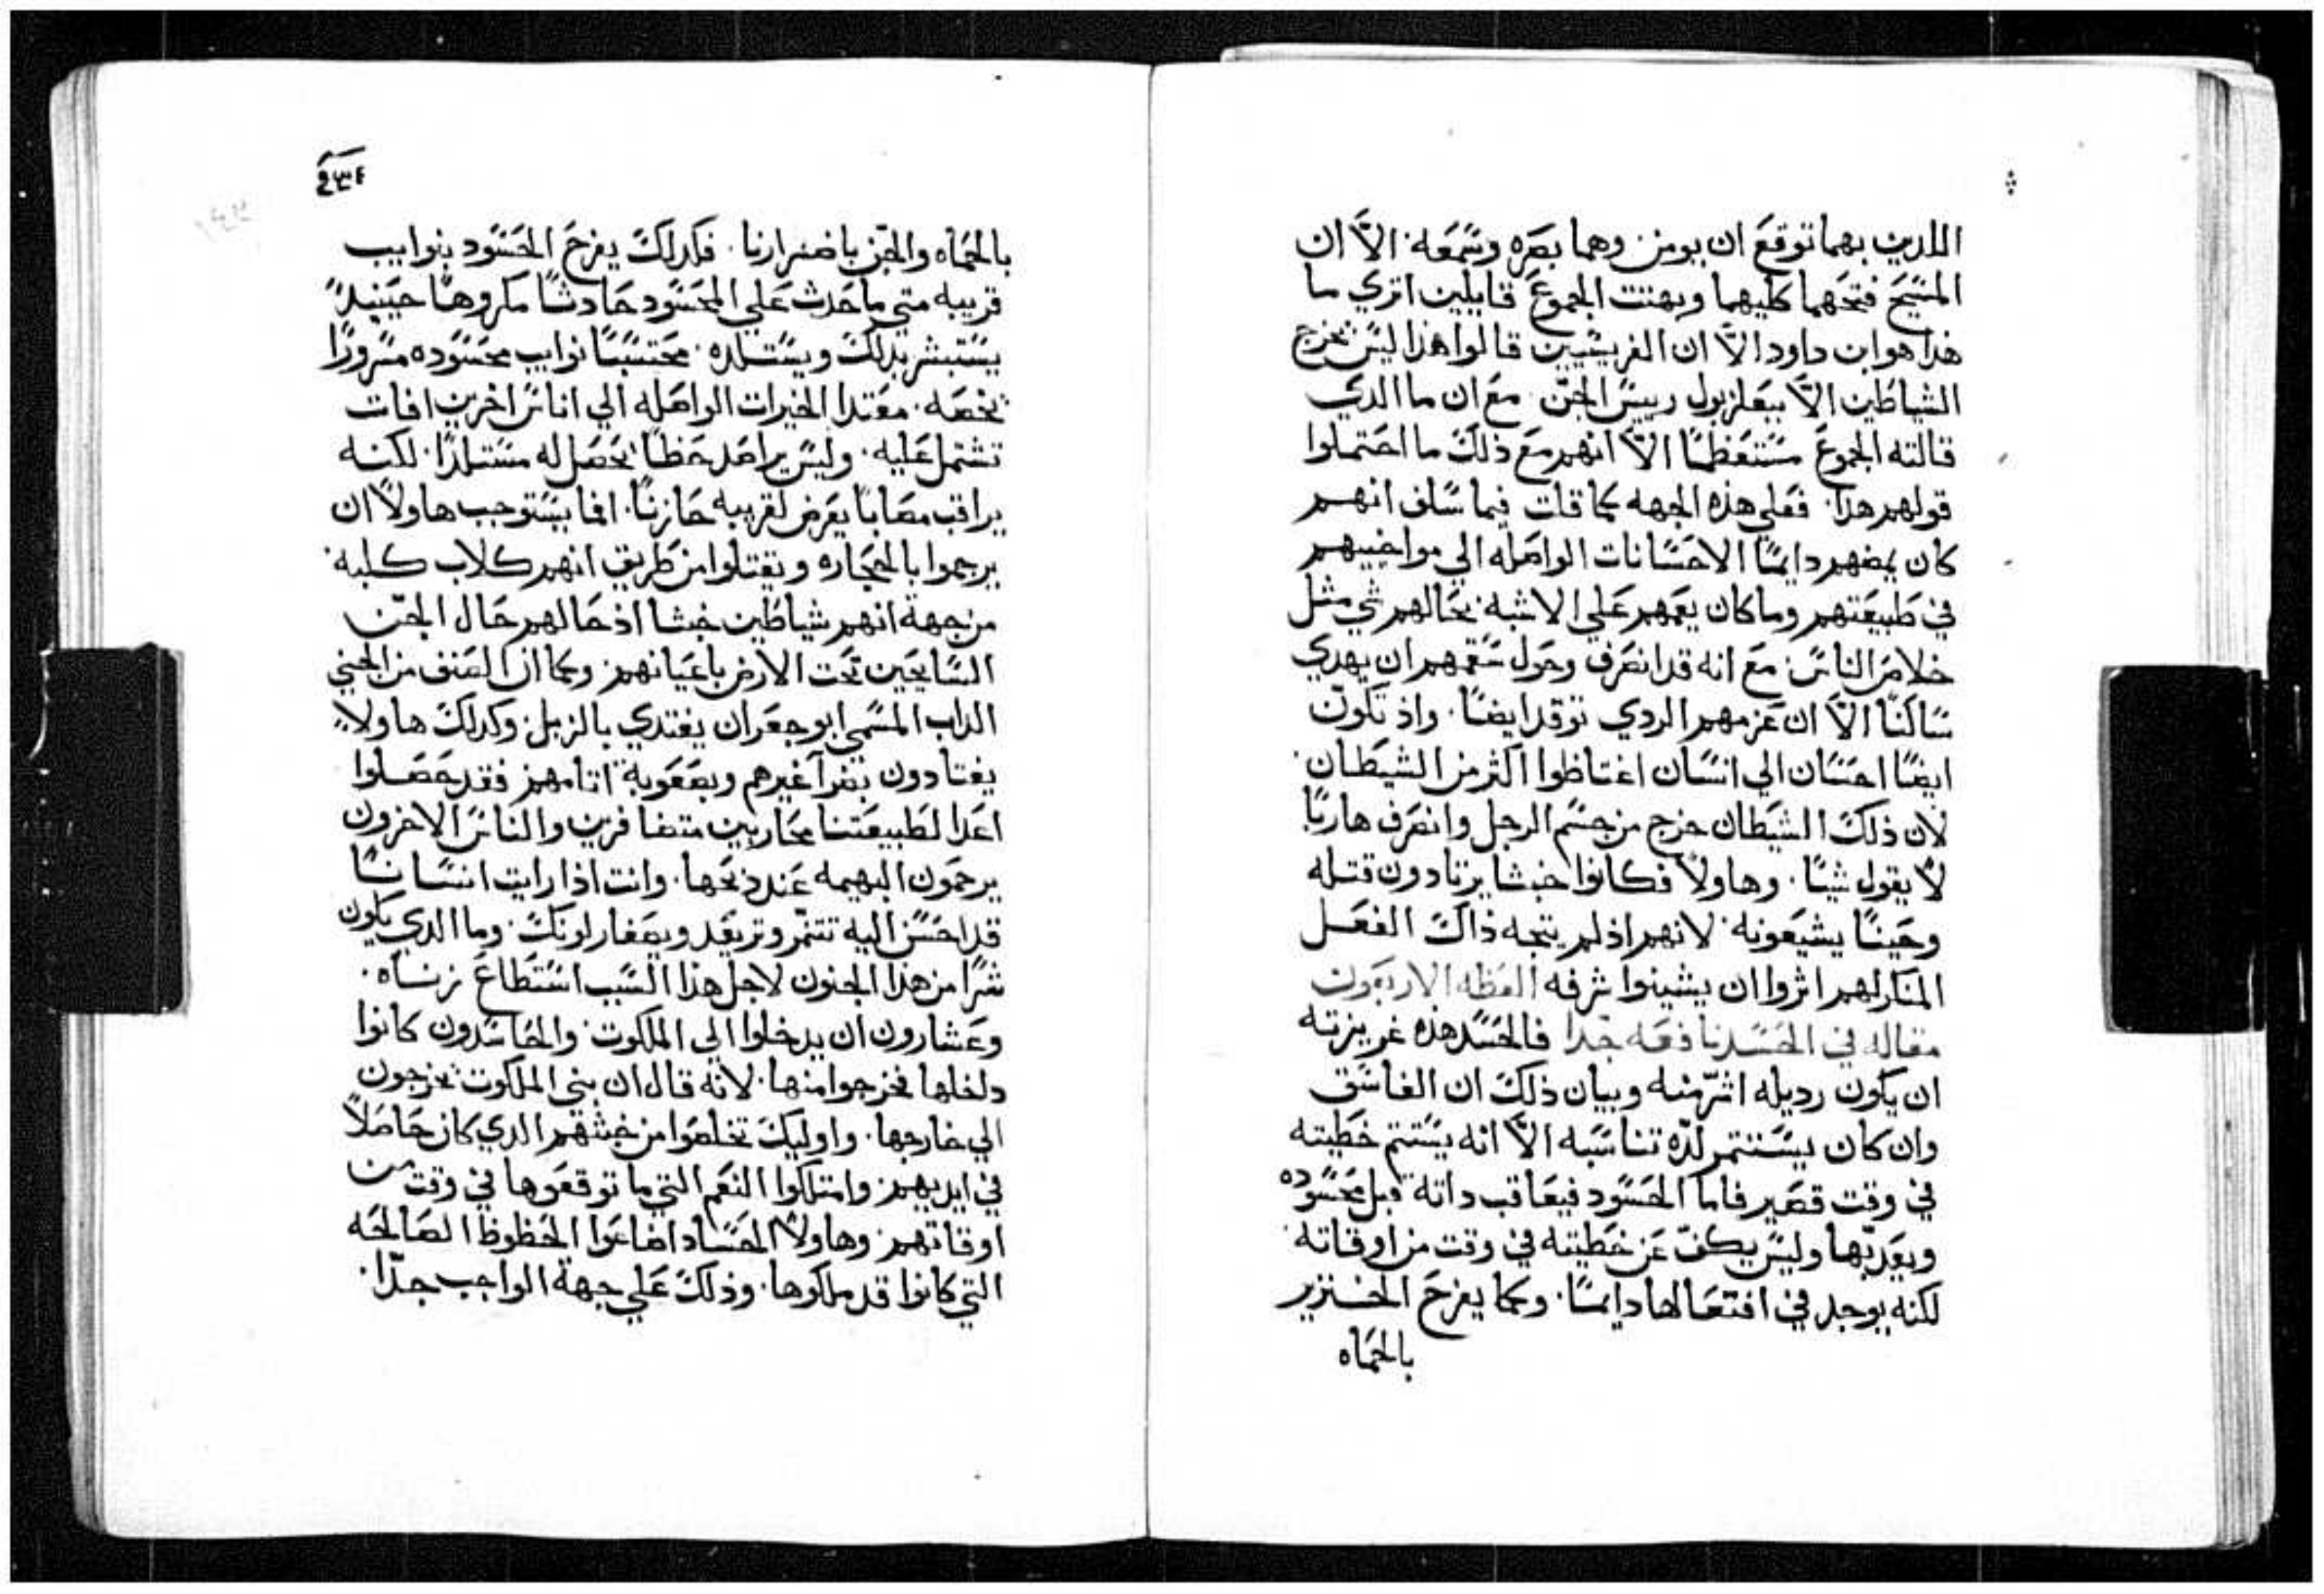 اللدين بهما توقع ان يومن وهما بصره وسمعه. الاّ ان
المسيح فتحهما كليهما وبهتت الجموع قايلين اتري ما
هذا هو ابن داود الاّ ان الفريسيين قالوا هذا ليس يخرج
الشياطين الاّ ببعلزبول رييس الجنّ. مع ان ما الدي
قالته الجموع مستعظمًا الاّ انهم مع ذلك ما احتملوا
قولهم هذا. فعلي هذه الجهه كما قلت فيما سلف انهم
كان يمضهم دايمًا الاحسانات الواصله الي مواخييهم
في طبيعتهم وما كان يغمهم علي الاشبه بحالهم شي مثل
خلاص الناس. مع انه قد انصرف وخول سقمهم ان يهدي
ساكنًا الاّ ان عزمهم الردي توقد ايضًا. واذ تكوّن
ايضًا احسان الي انسان اغتاظوا اكثر من الشيطان.
لان ذلك الشيطان خرج من جسم الرجل وانصرف هاربًا
لا يقول شيًا. وهاولا فكانوا خبثا يرتادون قتله
وحينًا يشيعونه. لانهم اذ لم يتجه ذاك الفعل
المنكر لهم اثروا ان يشينوا شرفه العظه الاربعون
مقاله في الحسد نافعه جدا فالحسد هذه غريزته
ان يكون رديله اشرّ منه وبيان ذلك ان الفاسق
وان كان يستثمر لدّه تناسبه الاّ انه يستتم خطيته
في وقت قصير فاما الحسود فيعاقب داته قبل محسوده
ويعدّبها وليس يكفّ عن خطيته في وقت من اوقاته
لكنه يوجد في افتعالها دايمًا. وكما يفرح الخنزير
بالحماه
٤٣٤
بالحماه والجنّ باضرارنا. فكدلك يفرح الحسود بنوايب
قريبه متي ما حدث علي المحسود حادثًا مكروهًا حينيدٍ
يستبشر بدلك ويستلده. محتسبًا نوايب محسوده سرورًا
يخصه. معتدا الخيرات الواصله الي اناس اخرين افات
تشتمل عليه. وليس يراصد حظًا يحصل له مستلدًا. لكنه
يراقب مصابًا يعرض لقريبه حازنًا. افما يستوجب هاولا ان
يرجموا بالحجاره ويقتلوا من طريق انهم كلاب كلبه.
من جهة انهم شياطين خبثا اذ حالهم حال الجنّ
السايحين تحت الارض باعيانهم. وكما ان الصنف من الجني
الداب المسمي ابو جعران يغتدي بالزبل. وكدلك هاولا
يغتادون بضرآ غيرهم وبصعوبة اتامهم. فقد حصلوا
اعدا لطبيعتنا محاربين متضافرين والناس الاخرون
يرحمون البهيمه عند دبحها. وانت اذا رايت انسانًا
قد احسن اليه تتنمّر وترتعد ويصفار لونك. وما الدي يكون
شرًا من هذا الجنون لاجل هذا السبب استطاع زناه.
وعشارون ان يدخلوا الي الملكوت. والحاسدون كانوا
داخلها فخرجوا منها. لانه قال ان بني الملكوت يخرجون
الي خارجها. واوليك تخلصوا من خبثهم الدي كان حاصلاً
في ايديهم. وامتلكوا النعم التي ما توقعوها في وقت من
اوقاتهم. وهاولا الحساد اضاعوا الحظوظ الصالحه
التي كانوا قد ملكوها. وذلك علي جهة الواجب جدّا.